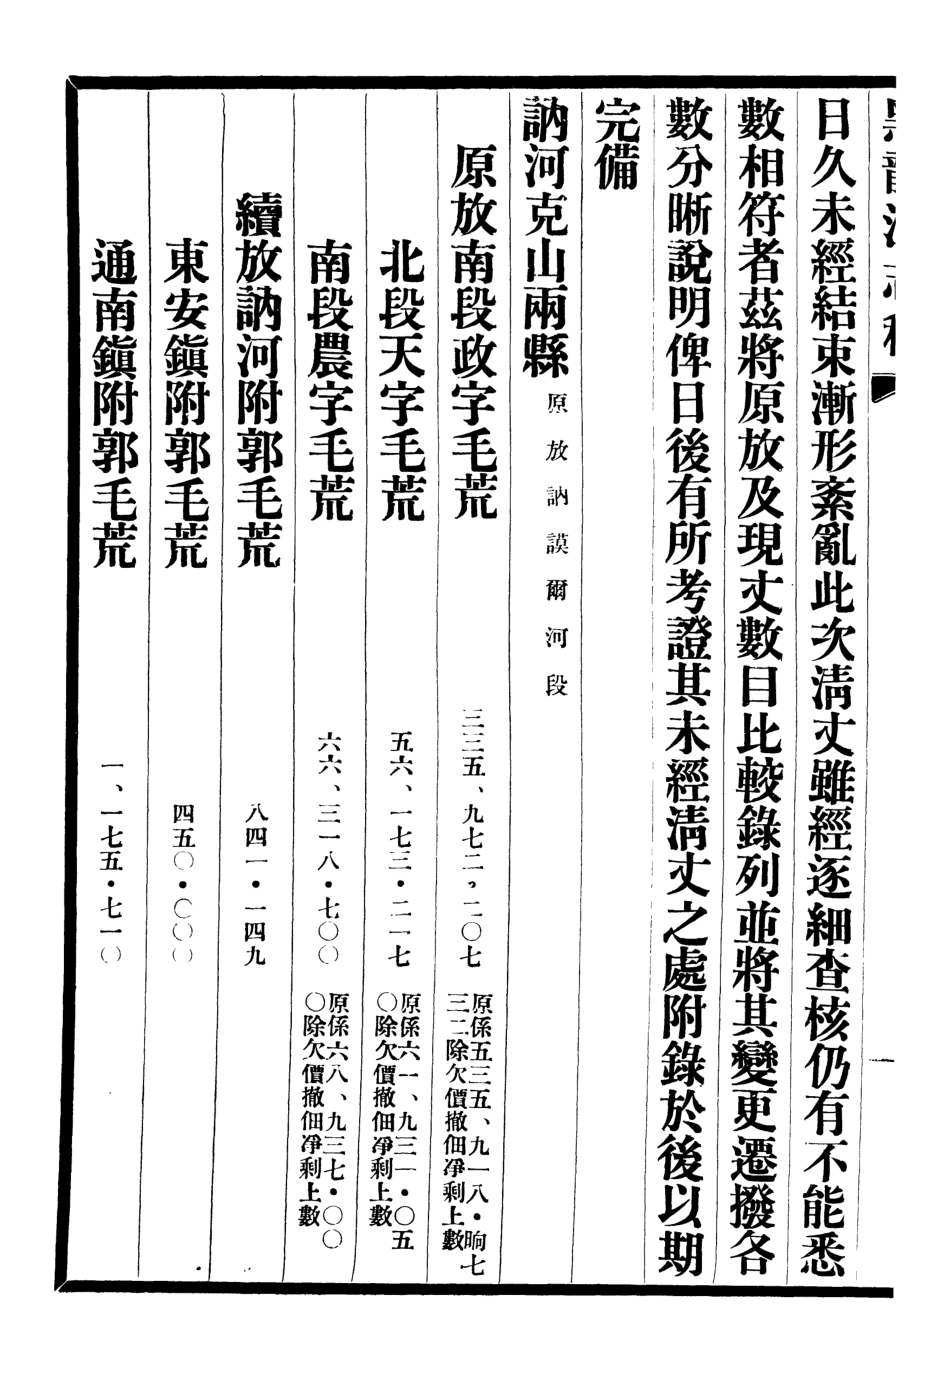 黑龍江志稿
一
日久未經結束漸形紊亂此次淸丈雖經逐細查核仍有不能悉
數相符者茲將原放及現丈數目比較錄列並將其變更遷撥各
數分晰說明俾日後有所考證其未經淸丈之處附錄於後以期
完備
訥河克山兩縣 原放訥謨爾河段
原放南段政字毛荒 三三五、九七二・二〇七 原係五三五、九一八・晌七三二除欠價撤佃凈剩上數
北段天字毛荒 五六、一七三・二一七 原係六一、九三一・〇五〇除欠價撤佃凈剩上數
南段農字毛荒 六六、三一八・七〇〇 原係六八、九三七・〇〇〇除欠價撤佃凈剩上數
續放訥河附郭毛荒 八四一・一四九
東安鎭附郭毛荒 四五〇・〇〇〇
通南鎭附郭毛荒 一、一七五・七一〇